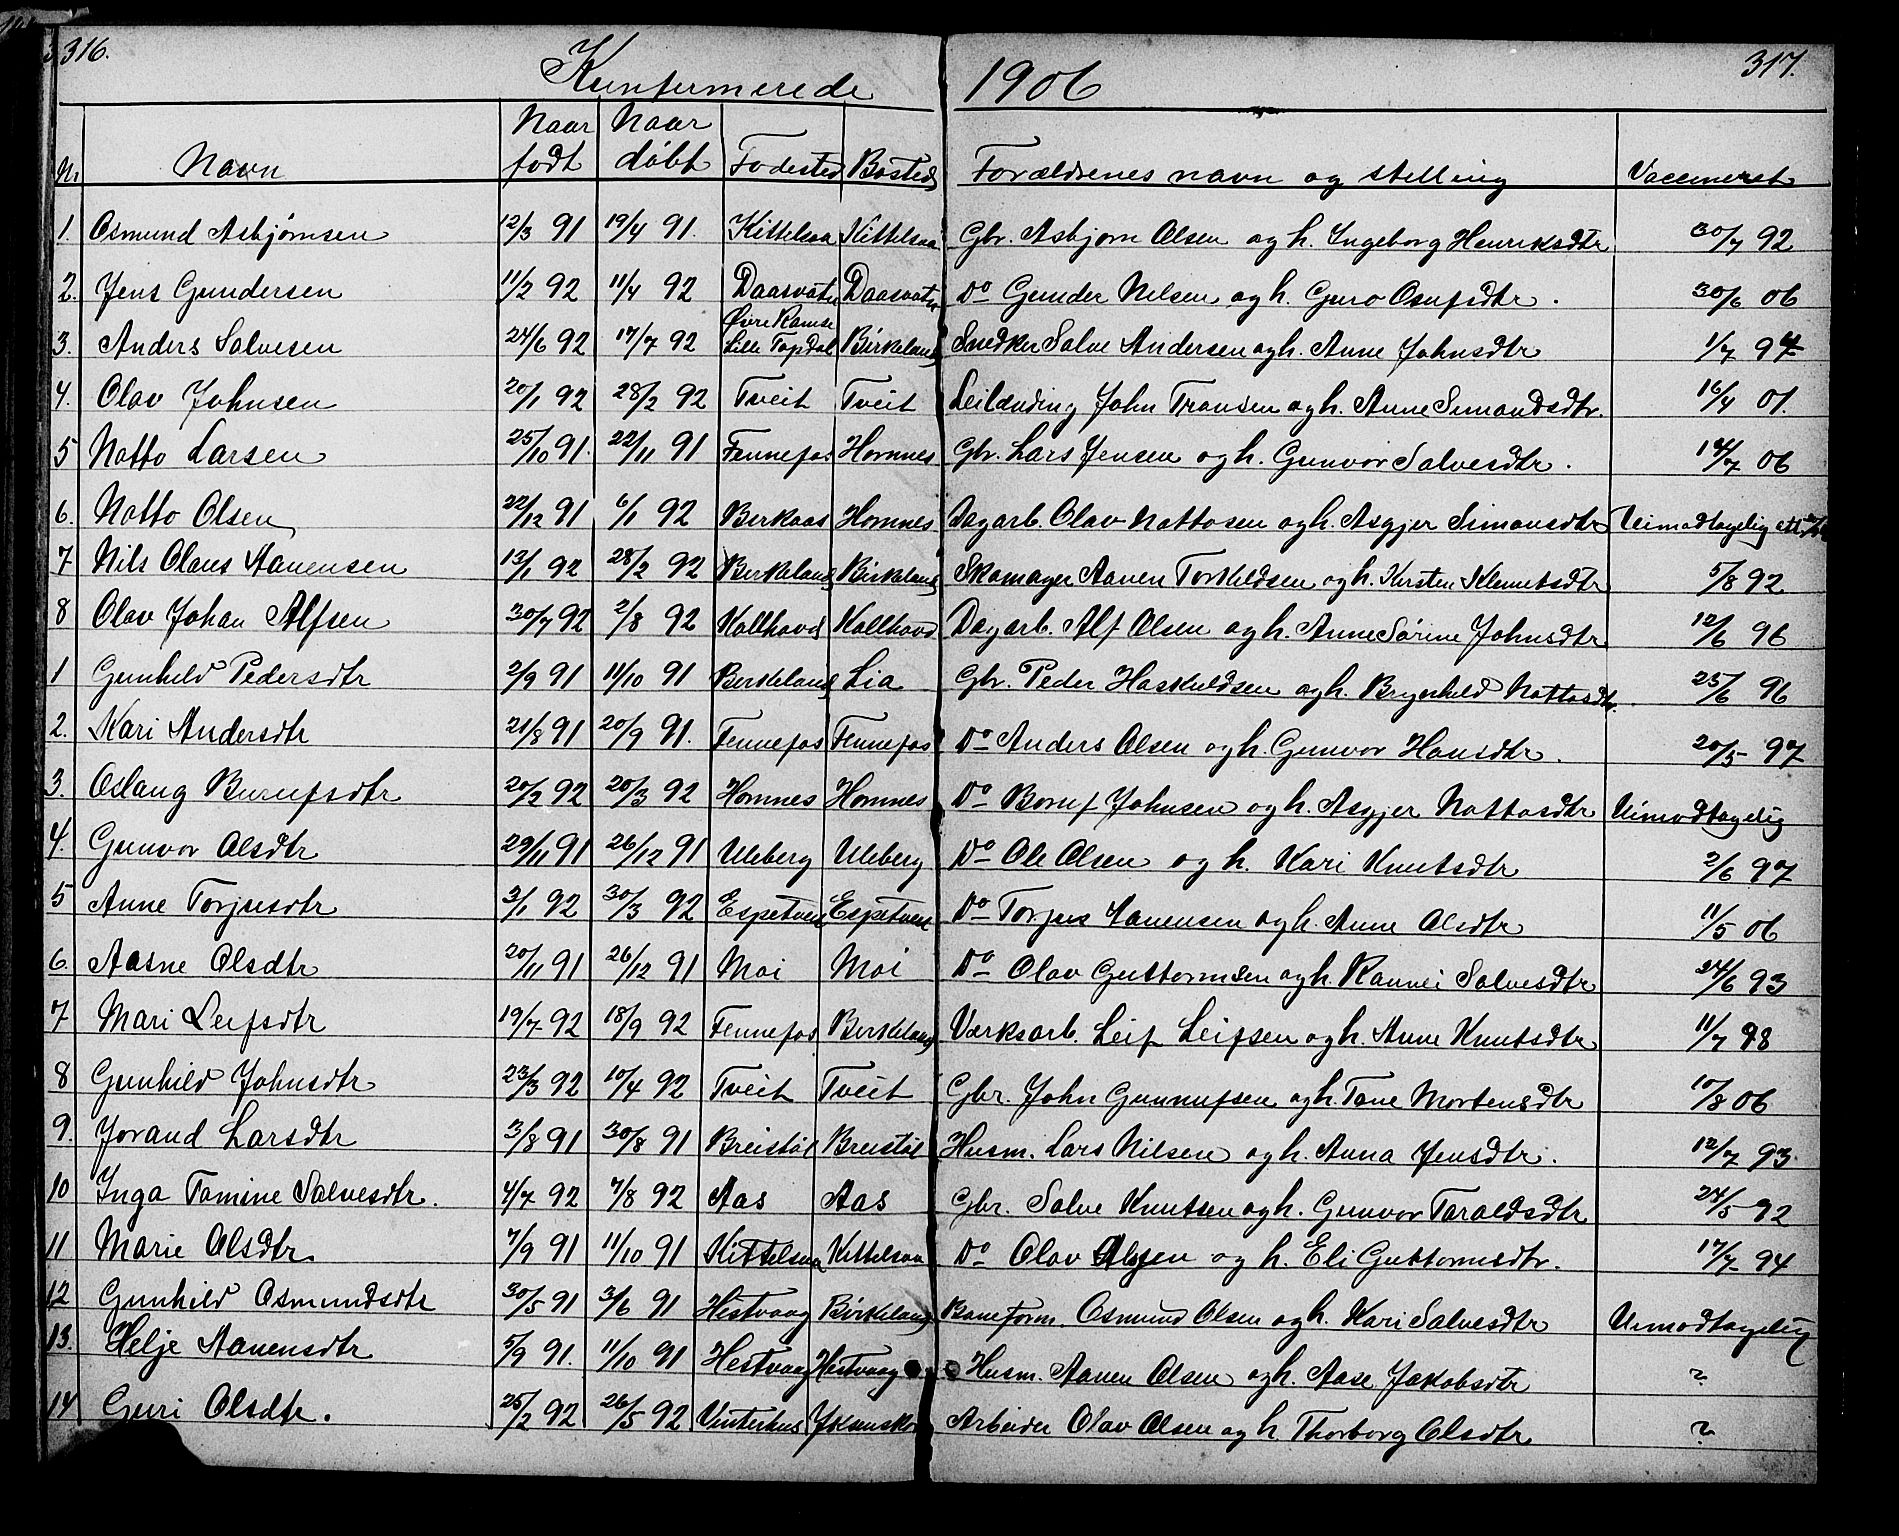 316. 317.
Konfirmerede 1906
Nr. Navn Naar født Naar døbt Fødested Bosted Forældrenes navn og stilling Vaccineret
1. Osmund Asbjørnsen 12/3 91 19/4 91. Kittelsaa Kittelsaa Gbr. Asbjørn Olsen og h. Ingeborg Henriksdtr. 30/7 92
2. Jens Gundersen 11/2 92 11/4 92 Daasvatn Daasvatn Do Gunder Nilsen og h. Guro Osufsdtr. 30/6 06
3. Anders Salvesen 24/6 92 17/7 92 Øvre Ramse Lille Topdal Birkeland Snedker Salve Andersen og h. Anne Johnsdtr 1/7 97
4. Olav Johnsen 20/1 92 28/2 92 Tveit Tveit Leilænding John Tronsen og h. Anne Simondsdtr. 16/4 01.
5 Notto Larsen 25/10 91. 22/11 91 Fennefos Hornnes Gbr. Lars Jensen og h. Gunvor Salvesdtr. 14/7 06
6. Notto Olsen 22/12 91 6/1 92 Berkaas Hornnes Dagarb. Olav Nottosen og h. Asgjer Simonsdtr Uimodtagelig
7 Nils Olaus Aanensen 13/1 92 28/2 92 Birkeland Birkeland Skomager Aanen Torkildsen og h. Kirsten Klemetsdtr 5/8 92
8 Olav Johan Alfsen 30/7 92 2/8 92 Kallhovd Kallhovd Dagarb. Alf Olsen og h. Anne Sørine Johnsdtr. 12/6 96
1 Gunhild Pedersdtr 2/9 91 11/10 91 Birkeland Lia Gbr. Peder Haskuldsen og h. Brynhild Nottosdtr. 25/6 96
2. Kari Andersdtr 21/8 91 20/9 91. Fennefos Fennefos Do Anders Olsen og h. Gunvor Hansdtr. 20/5 97
3. Oslaug Borufsdtr 20/2 92 20/3 92 Hornnes Hornnes Do Boruf Johnsen og h. Asgjer Nottosdtr Uimodtagelig
4. Gunvor Olsdtr 29/11 91 26/12 91 Uleberg Uleberg Do Ole Olsen og h. Kari Knutsdtr 2/6 97
5 Anne Torjusdtr 3/1 92 30/3 92 Espetveit Espetveit Do Torjus Aanensen og h. Anne Olsdtr 11/5 06
6. Aasne Olsdtr 20/11 91 26/12 91 Moi Moi Do Olav Guttormsen og h. Rannei Salvesdtr 24/6 93
7 Mari Leifsdtr 19/7 92 18/9 92 Fennefos Birkeland Værksarb. Leif Leifsen og h. Anne Knutsdtr 11/7 98
8 Gunhild Johnsdtr 23/3 92 10/4 92 Tveit Tveit Gbr. John Gunnufsen og h. Tone Mortensdtr 10/8 06
9. Jorand Larsdtr 3/8 91 30/8 91 Breistøl Breistøl Husm. Lars Nilsen og h. Anna Jensdtr. 12/7 93.
10 Inga Tomine Salvesdtr. 4/7 92 7/8 92 Aas Aas Gbr. Salve Knutsen og h. Gunvor Taraldsdtr 24/5 92
11 Marie Olsdtr. 7/9 91 11/10 91 Kittelsaa Kittelsaa Do Olav Olsen og h. Eli Guttormsdtr. 17/7 94
12 Gunhild Osmundsdtr 30/5 91 3/6 91 Hestvaag Birkeland Baneform. Osmund Olsen og h. Kari Salvesdtr Uimodtagelig
13. Helje Aanensdtr 5/9 91. 11/10 91 Hestvaag Hestvaag Husm. Aanen Olsen og h. Aase Jakobsdtr ?
14 Guri Olsdtr. 25/2 92 26/5 92 Vinterhus Arbeider Olav Olsen og h. Thorborg Olsdtr ?